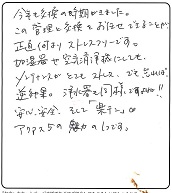 今年も交換の時期がきました。
この管理と交換をお任せできることが
正直何よりストレスフリーです。
加湿器や空気清浄機にしても
メンテナンスがとてもストレス、でも忘れれば
逆効果。浄水器も同様ですよね!!
安心、安全、そして「楽チン」∞
アクアス5の魅力の1つです。